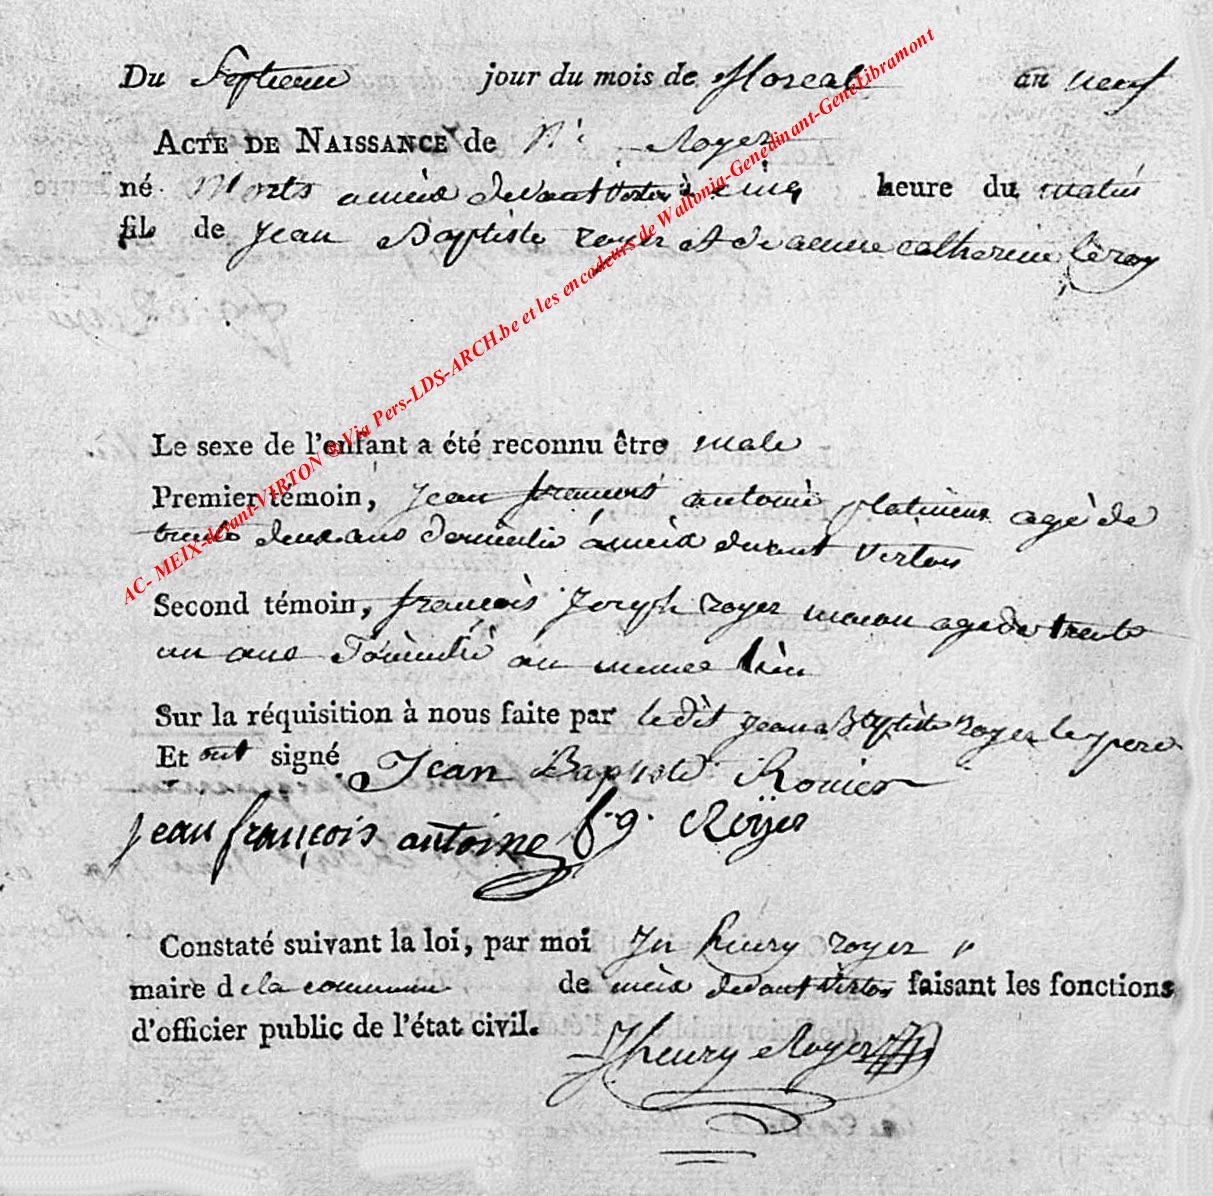 Du Septieme jour du mois de floreal an neuf
ACTE DE NAISSANCE de N. Royer
né Morts a meix devant virton à cinq heure du matin
fils de jean Baptiste royer et de anne catherine leroy
Le sexe de l'enfant a été reconnu être male
Premier témoin, jean francois antoine platineur agé de
trente deux ans domicilié à meix devant virton
Second témoin, françois joseph royer macon agé de trente
un ans domicilié au meme lieu
Sur la réquisition à nous faite par ledit jean Baptiste royer le pere
Et ont signé Jean Baptiste Rouier
jean françois antoine f. g. Roÿer
Constaté suivant la loi, par moi Jn henry royer
maire de la commune de meix devant virton faisant les fonctions
d'officier public de l'état civil.
Jhenry Royer
AC- MEIX-devant-VIRTON @ Via Pers-LDS-ARCH.be et les encodeurs de Wallonia-Genedinant-GeneLibramont